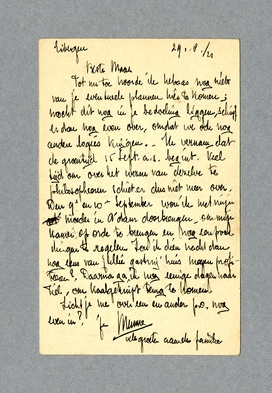 Nibergen 29.8./20
Beste Maas
Tot nu toe hoorde ik helaas nog niets
van je eventuele plannen hier te komen;
mocht dit nog in je bedoeling liggen, schrijf
er dan nog even over, omdat we ook nog
andere logies krijgen. Ik vernam dat
de groentijd 15 Sept. a.s. begint. Veel
tijd om over het wezen van dezelve te
philosopheren schiet er dus niet meer over.
Den 9en en 10en September worde ik met mijn
moeder in A'dam doorbrengen, om mijn
kamer op orde te brengen en nog een paar
dingen te regelen. Zou ik dien nacht dan
nog eens van jullie gastvrij huis mogen profi-
teren? Daarna ga ik nog eenige dagen naar
Tiel, om
Licht je me over een en ander p.o. nog
even in? Je Menno
vele groeten aan de familie